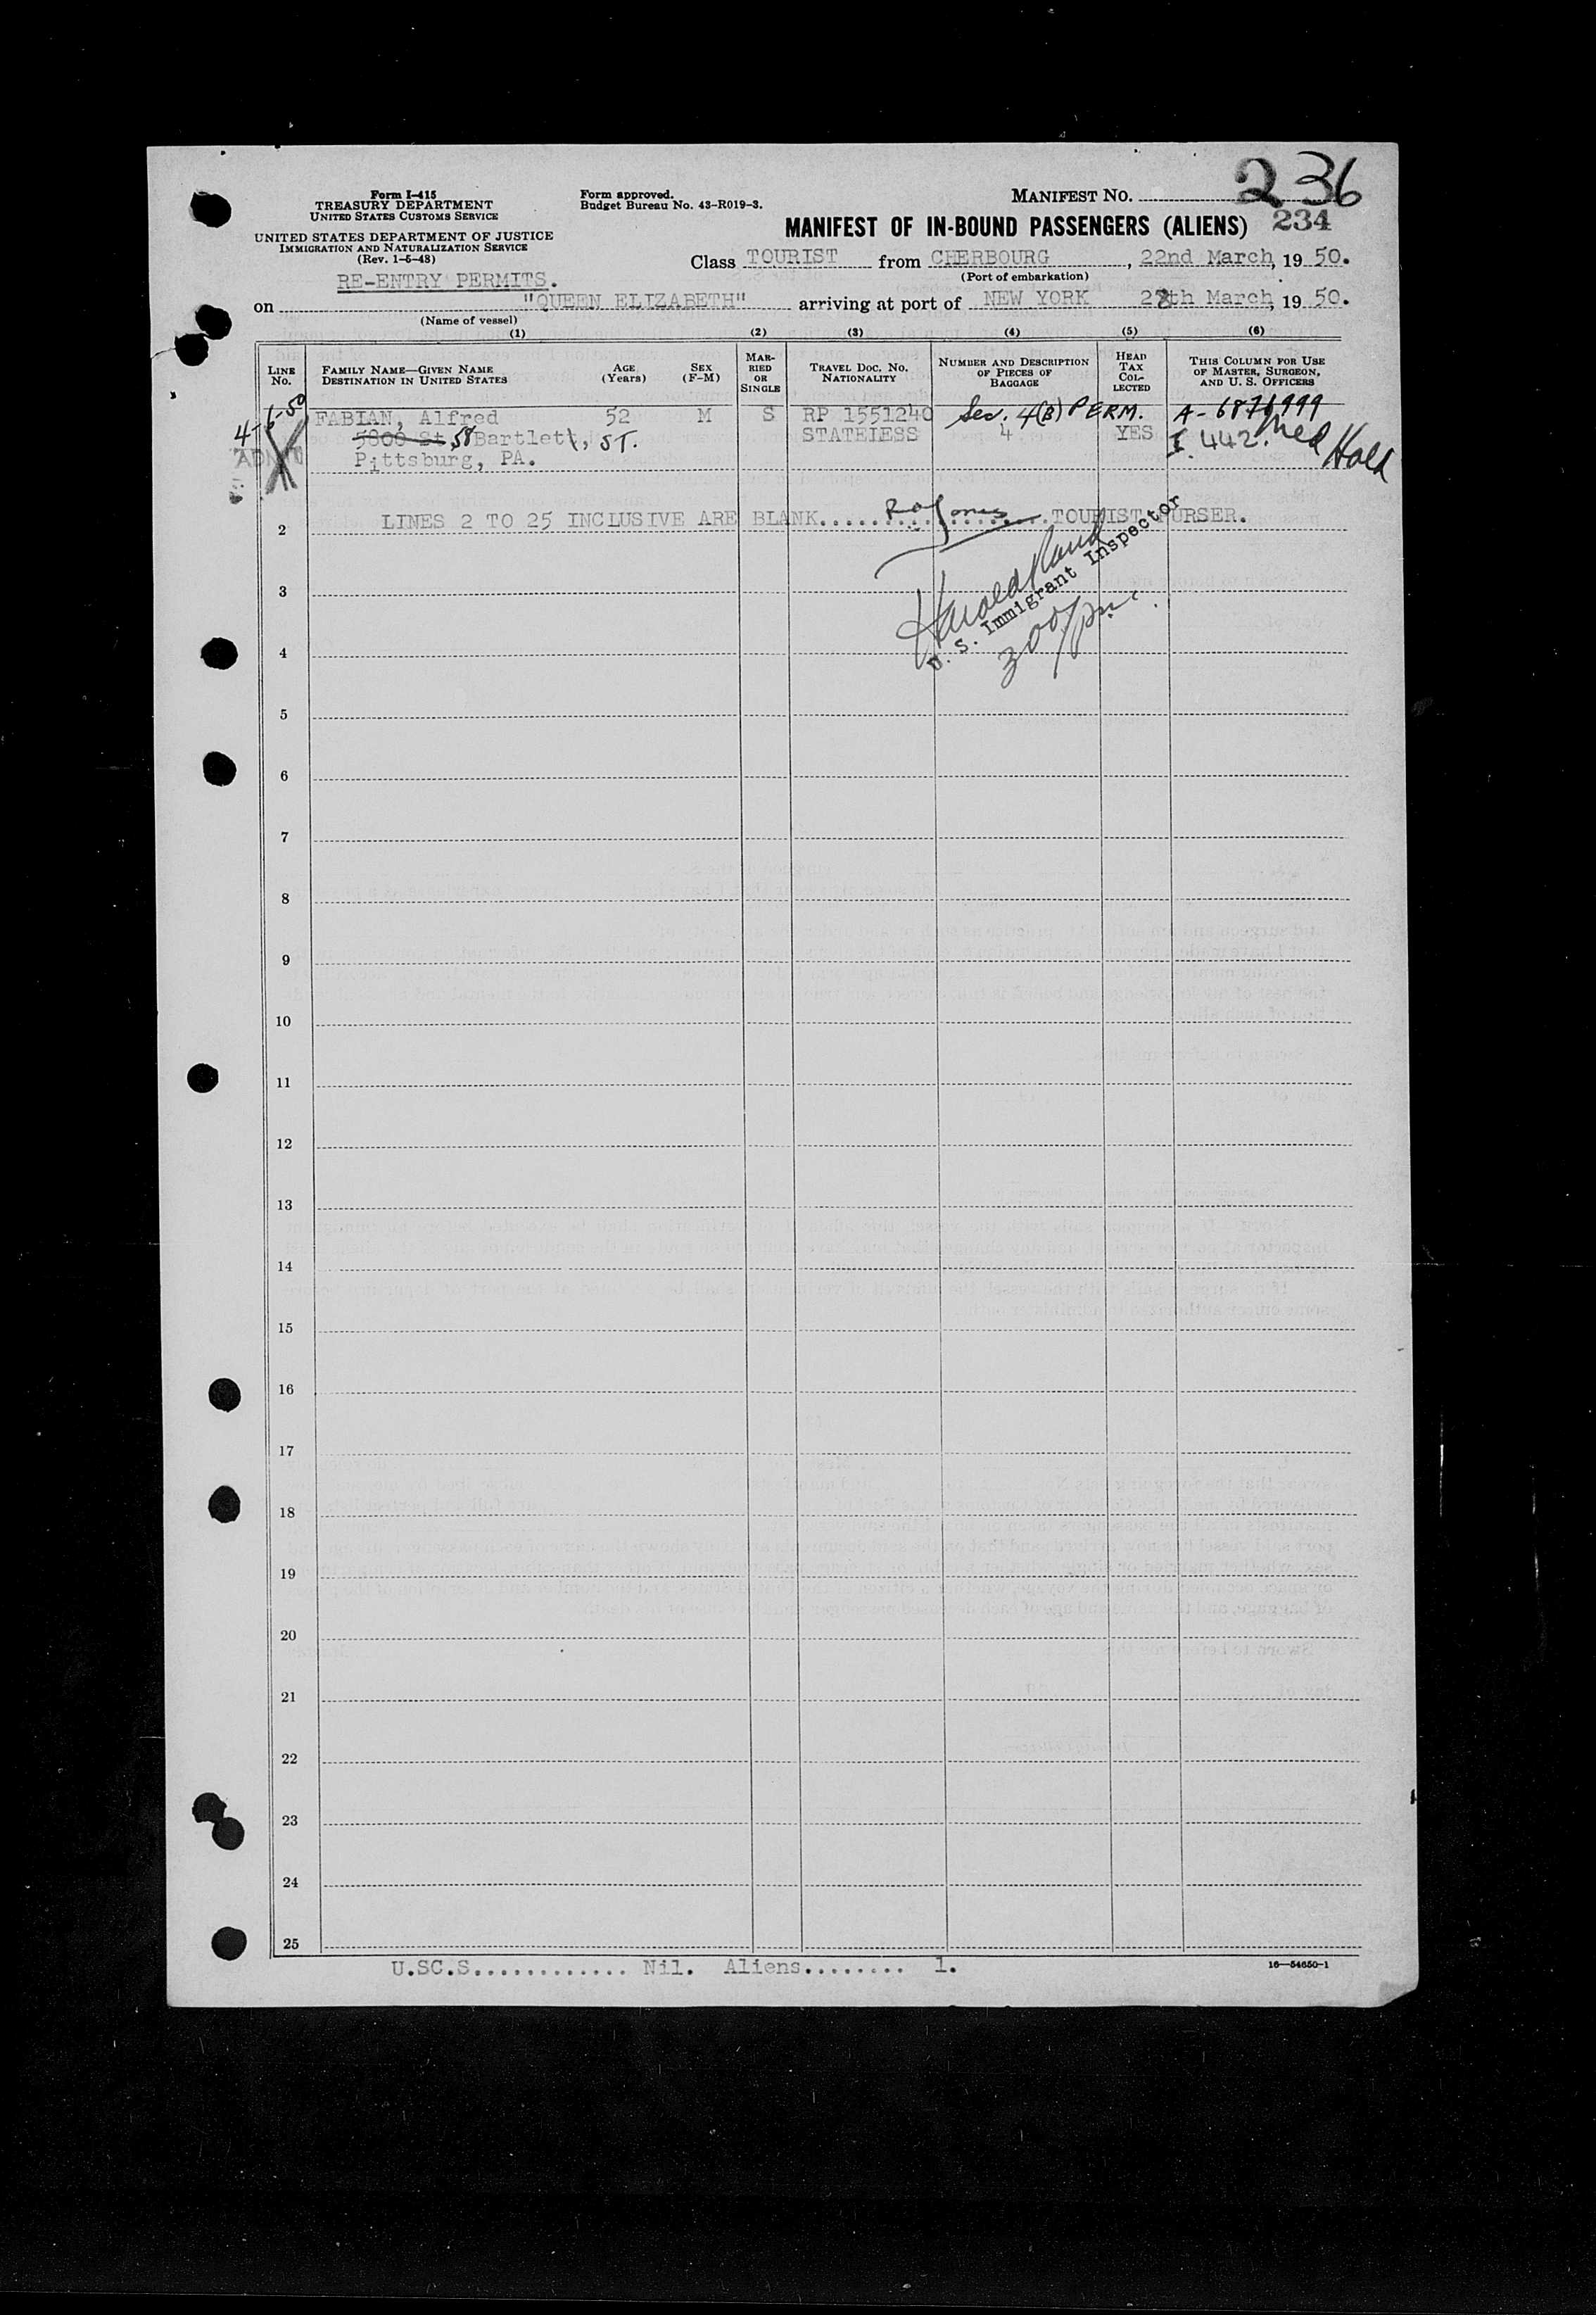 Form I-415
TREASURY DEPARTMENT
UNITED STATES CUSTOMS SERVICE
UNITED STATES DEPARTMENT OF JUSTICE
IMMIGRATION AND NATURALIZATION SERVICE
(Rev. 1-5-48)
Form approved.
Budget Bureau No. 43-R019-3.
MANIFEST NO. 236
MANIFEST OF IN-BOUND PASSENGERS (ALIENS) 234
RE-ENTRY PERMITS.
Class TOURIST from CHERBOURG, 22nd March, 19 50.
(Port of embarkation)
on "QUEEN ELIZABETH" arriving at port of NEW YORK 28th March, 19 50.
(Name of vessel)
(1) (2) (3) (4) (5) (6)
LINE No.
FAMILY NAME—GIVEN NAME
DESTINATION IN UNITED STATES
AGE (Years)
SEX (F-M)
MARRIED OR SINGLE
TRAVEL DOC. NO.
NATIONALITY
NUMBER AND DESCRIPTION OF PIECES OF BAGGAGE
HEAD TAX COLLECTED
THIS COLUMN FOR USE OF MASTER, SURGEON, AND U. S. OFFICERS
FABIAN, Alfred 52 M S RP 1551240 Sec. 4(B) PERM.
5800 St, 58 Bartlett, ST. STATELESS 4 YES I. 442. Med Hold
Pittsburg, PA.
2 LINES 2 TO 25 INCLUSIVE ARE BLANK. TOURIST PURSER.
Harold
U. S. Immigrant Inspector
300 pm
3
4
5
6
7
8
9
10
11
12
13
14
15
16
17
18
19
20
21
22
23
24
25
U.SC.S............ Nil. Aliens........ 1.
16—54650-1